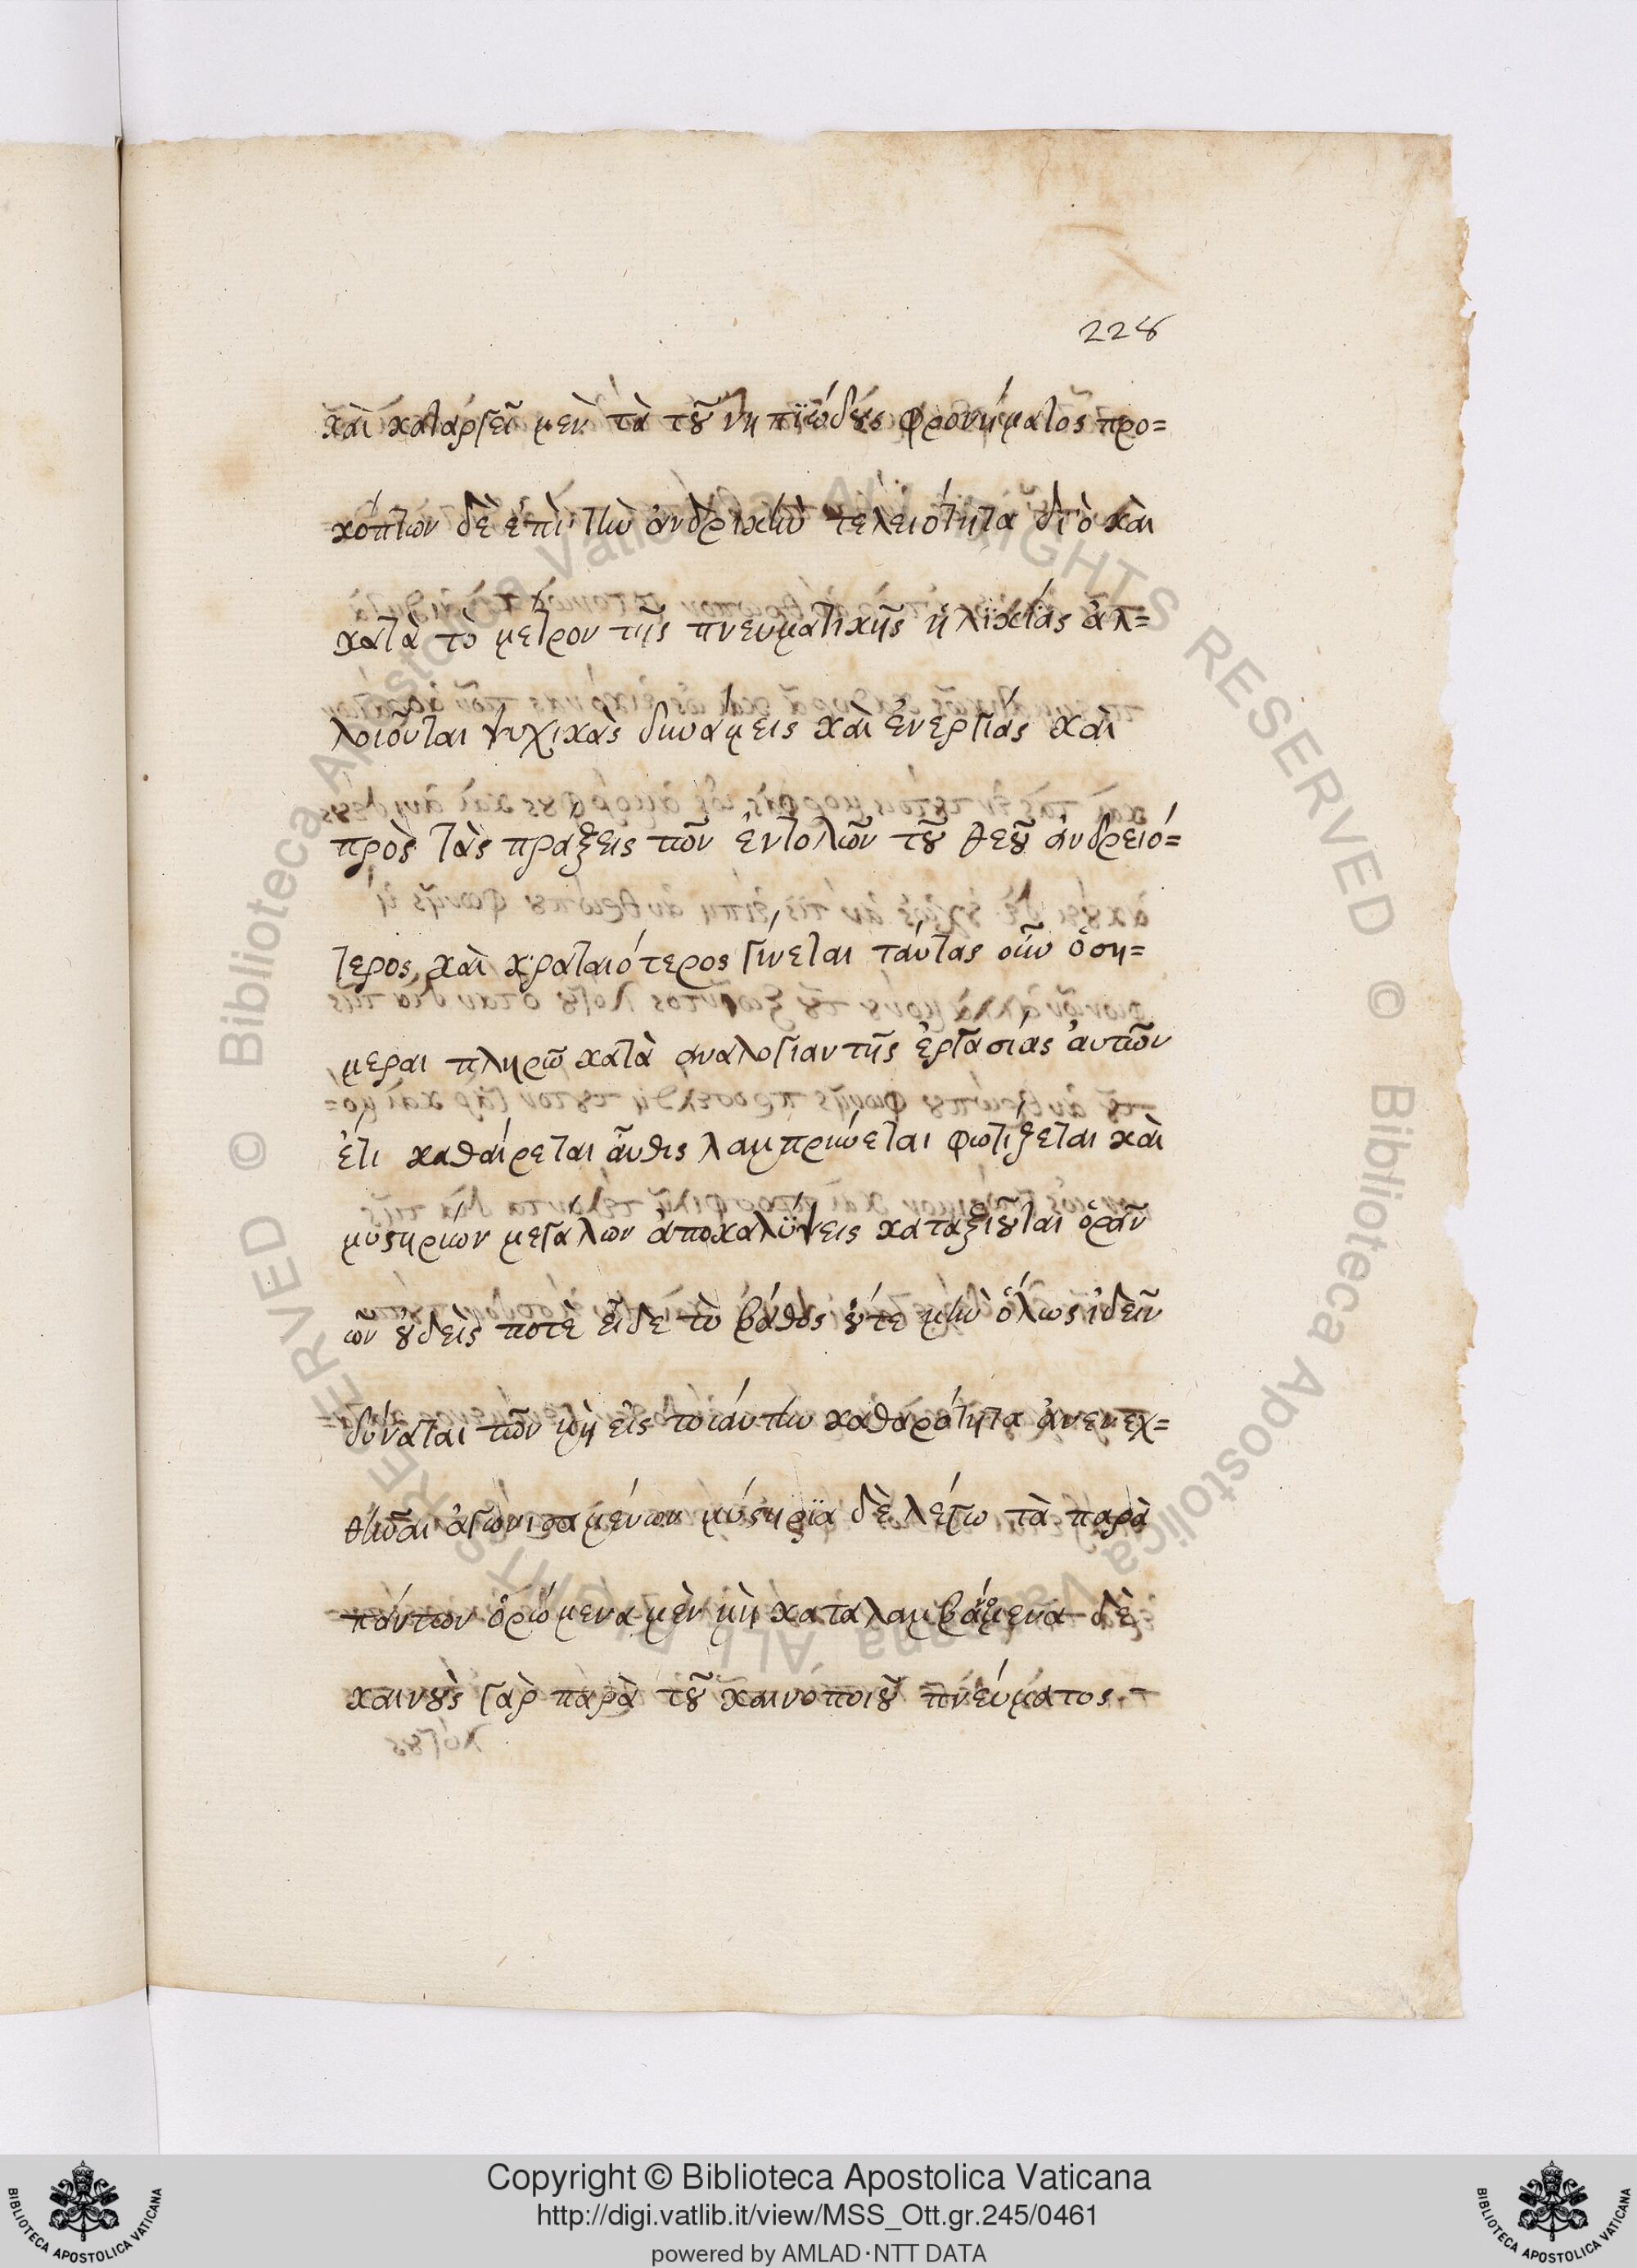 228
καὶ καταργεῖ μὲν τὰ τοῦ νηπϊώδους φρονήματος προ=
κόπτων δὲ ἐπὶ τὴν ἀνδρικὴν τελειότητα διὸ καὶ
κατὰ τὸ μέτρον τῆς πνευματικῆς ἡλϊκίας ἀλ=
λοιοῦται ψυχικὰς δυνάμεις καὶ ἐνεργίας καὶ
πρὸς τὰς πράξεις τῶν ἐντολῶν τοῦ θεοῦ ἀνδρειό=
τερος καὶ κραταιότερος γίνεται ταύτας οὖν ὁση=
μέραι πληρῶ κατὰ ἀναλογίαν τῆς ἐργασίας ἀυτῶν
ἔτι καθαίρεται ἄυθις λαμπρύνεται φωτίζεται καὶ
μυστηρίων μεγάλων ἀποκαλϋψεις καταξιοῦται ὁρᾶν
ὧν οὐδεὶς ποτὲ εἶδε τὸ βάθος οὔτε μὴν ὅλως ἰδεῖν
δύναται τῶν μὴ εἰς τοιάυτην καθαρότητα ἀνενεχ=
θῆναι ἀγωνισαμένων μύστηρϊα δὲ λέγω τὰ παρὰ
πάντων ὁρώμενα μὲν μὴ καταλαμβανόμενα δὲ
καινοὺς γὰρ παρὰ τοῦ καινοποιοῦ πνεύματος
Copyright © Biblioteca Apostolica Vaticana
http://digi.vatlib.it/view/MSS_Ott.gr.245/0461
powered by AMLAD·NTT DATA
BIBLIOTECA APOSTOLICA VATICANA
BIBLIOTECA APOSTOLICA VATICANA
© Biblioteca Apostolica Vaticana ALL RIGHTS RESERVED © Biblioteca Apostolica Vaticana ALL RIGHTS RESERVED